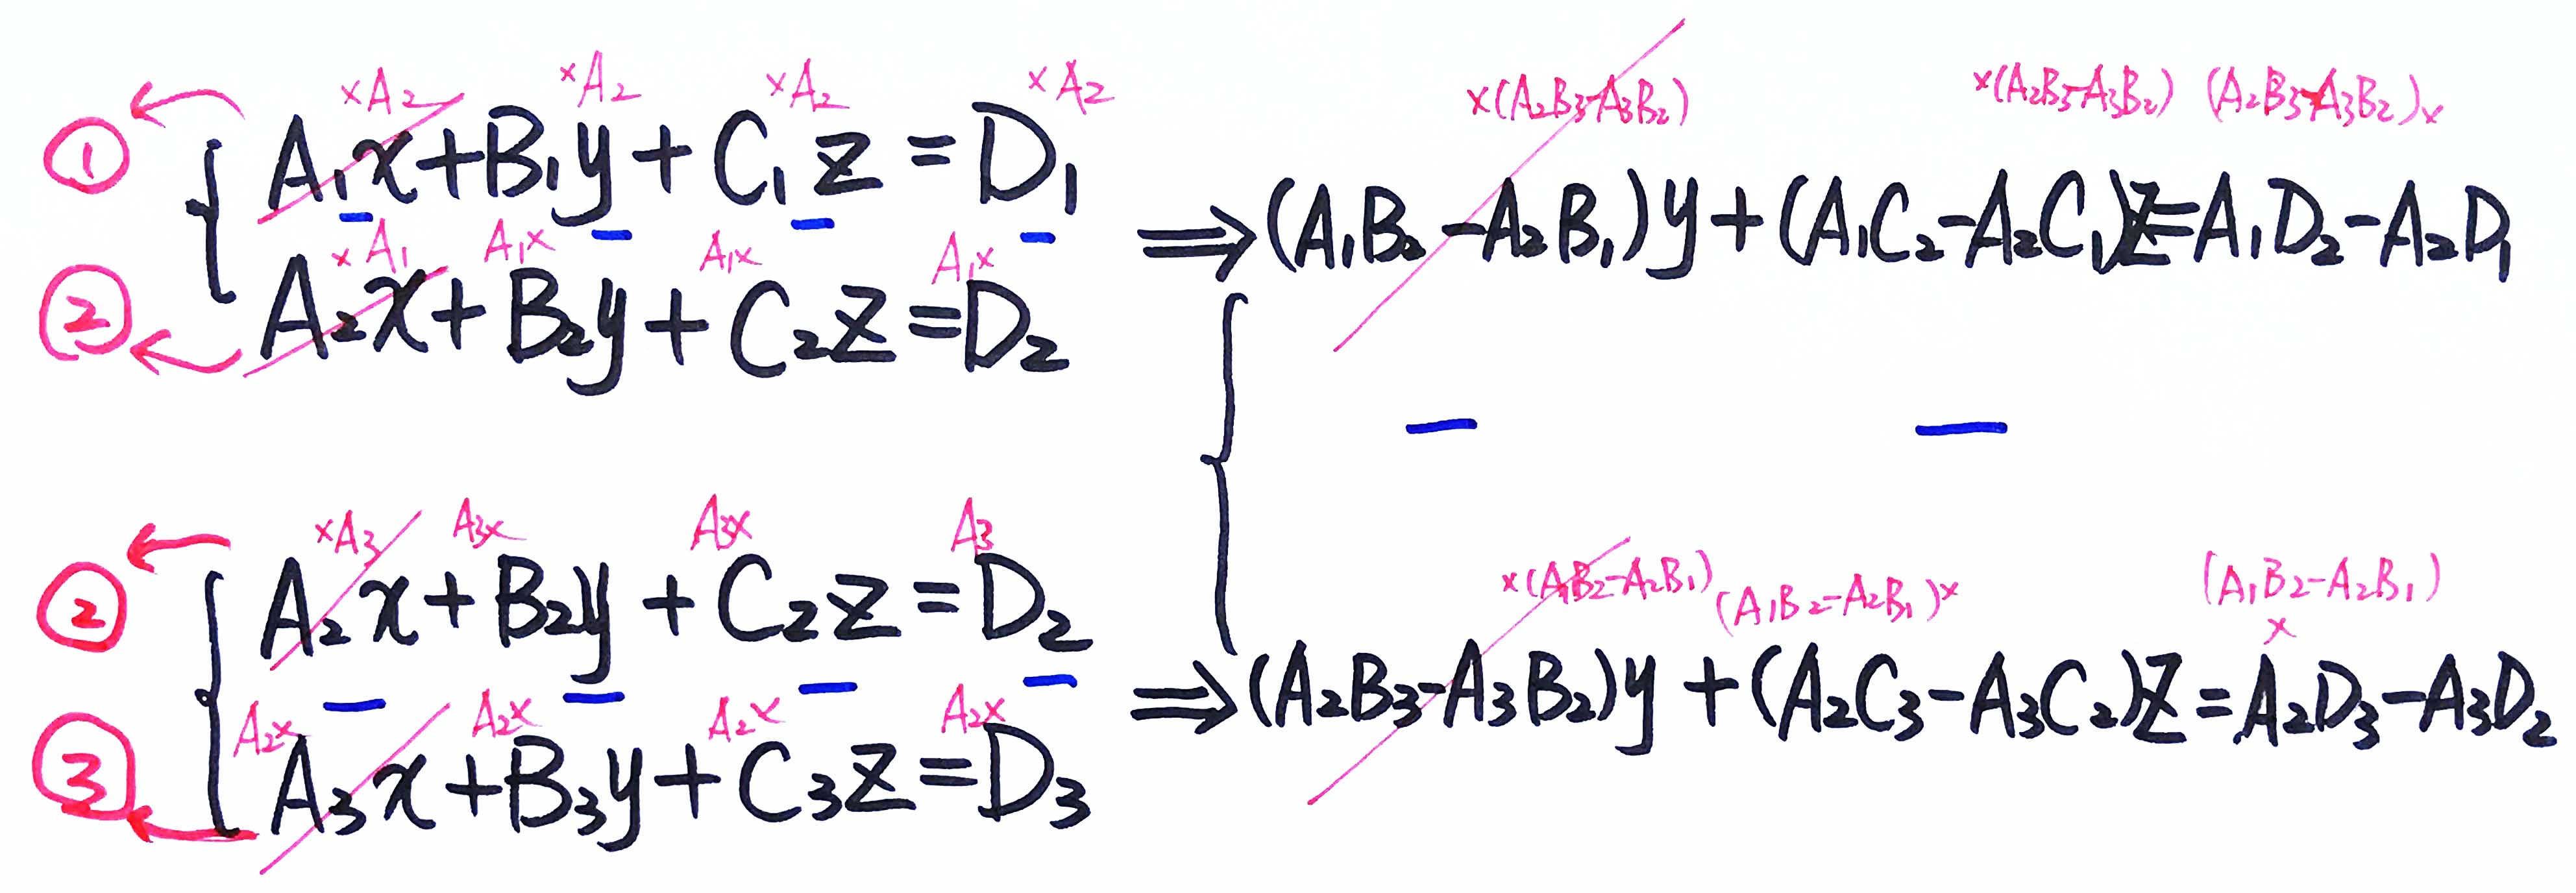 ×A₂ ×A₂ ×A₂ ×A₂
① A₁x+B₁y+C₁z=D₁
×A₁ A₁× A₁× A₁×
② A₂x+B₂y+C₂z=D₂
×(A₂B₃-A₃B₂) ×(A₂B₃-A₃B₂) (A₂B₃-A₃B₂)×
⇒(A₁B₂-A₂B₁)y+(A₁C₂-A₂C₁)z=A₁D₂-A₂D₁
— —
×A₃ A₃× A₃× A₃
② A₂x+B₂y+C₂z=D₂
A₂× A₂× A₂× A₂×
③ A₃x+B₃y+C₃z=D₃
×(A₁B₂-A₂B₁) (A₁B₂-A₂B₁)× (A₁B₂-A₂B₁)
×
⇒(A₂B₃-A₃B₂)y+(A₂C₃-A₃C₂)z=A₂D₃-A₃D₂